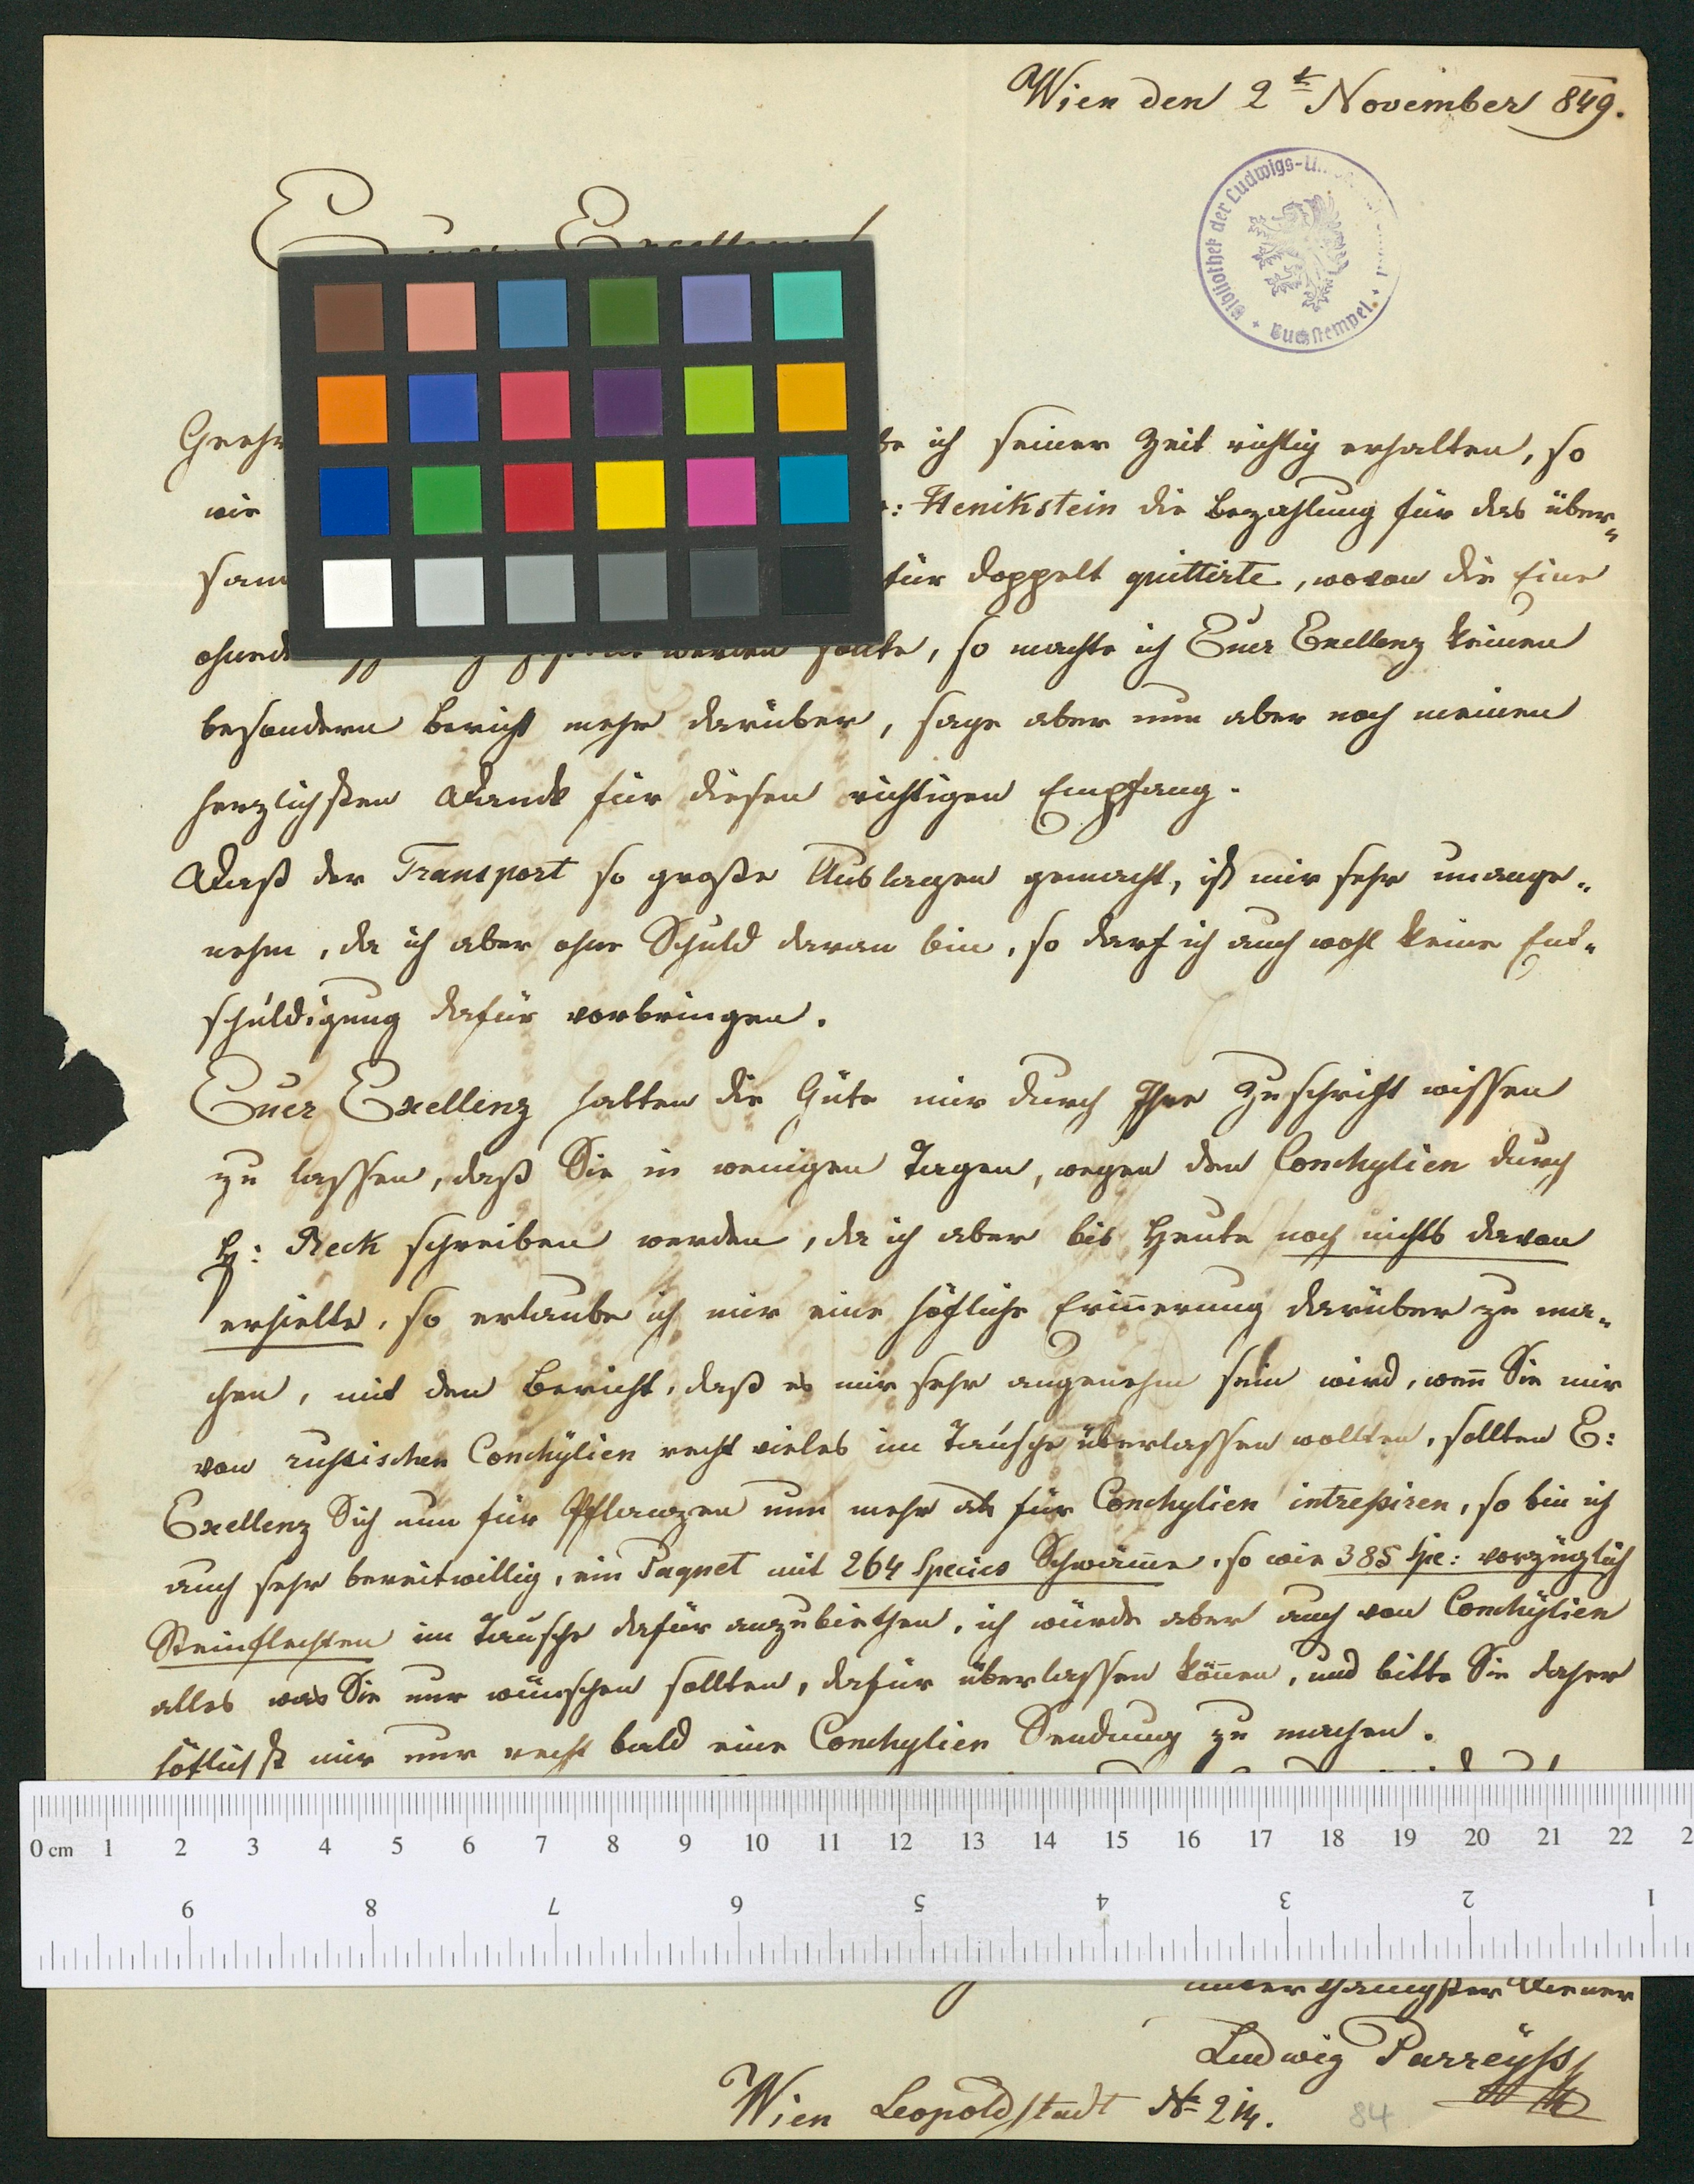 Wien den 2t November 849.
Bibliothek der Ludwigs-
Buchstempel.
Euer Excellenz
ich seiner Zeit richtig erhalten, so
wie : Henikstein die Bezahlung für das über=
für doppelt quittirte, wovon die Eine
werden sollte, so machte ich Euer Exellenz keinen
besondern Bericht mehr darüber, sage aber nun aber noch meinen
herzlichsten Dank für diesen richtigen Empfang.
Daß der Transport so große Auslagen gemacht, ist mir sehr unange=
nehm, da ich aber ohne Schuld daran bin, so darf ich auch wohl keine Ent=
schuldigung dafür vorbringen.
Euer Exellenz hatten die Güte mir durch Ihre Zuschrift wissen
zu lassen, daß Sie in wenigen Tagen, wegen den Conchylien durch
H: Reck schreiben werden, da ich aber bis Heute noch nichts davon
erhielte, so erlaube ich mir eine höfliche Erinnerung darüber zu ma=
chen, mit den Bericht, daß es mir sehr angenehm sein wird, wenn Sie mir
von russischen Conchÿlien recht vieles im Tausche überlassen wollten, sollten E:
Exellenz Sich nun für Pflanzen nun mehr als für Conchylien intreßiren, so bin ich
auch sehr bereitwillig, ein Paquet mit 264 Species Schwämme, so wie 385 Spe: vorzüglich
Steinflechten im Tausche dafür anzubiethen, ich würde aber auch von Conchÿlien
alles was Sie nur wünschen sollten, dafür überlassen können, und bitte Sie daher
höflichst mir nur recht bald eine Conchylien Sendung zu machen.
0 cm 1 2 3 4 5 6 7 8 9 10 11 12 13 14 15 16 17 18 19 20 21 22 2
9 8 7 6 5 4 3 2 1
unterthänigster Diener
Ludwig Parreÿss
Wien Leopoldstadt No 214. 84